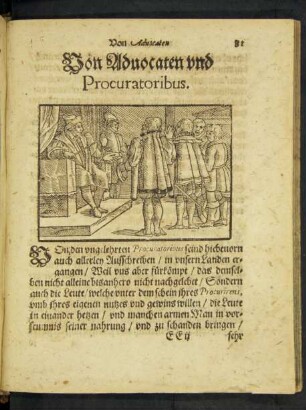 Von Advocaten 81
Von Aduocaten vnd
Procuratoribus.
VOn den vngelehrten Procuratoribus seind hiebeuorn
auch allerley Außschreiben / in vnsern Landen er-
gangen / Weil vns aber fürkömpt / das densel-
ben nicht alleine bisanhero nicht nachgelebet / Sondern
auch die Leute / welche vnter dem schein jhres Procurirens,
vnd jhres eigenen nutzes vnd gewins willen / die Leute
in einander hetzen / vnd manchen armen Man in vor-
seumnis seiner nahrung / vnd zu schanden bringen /
EE ij sehr